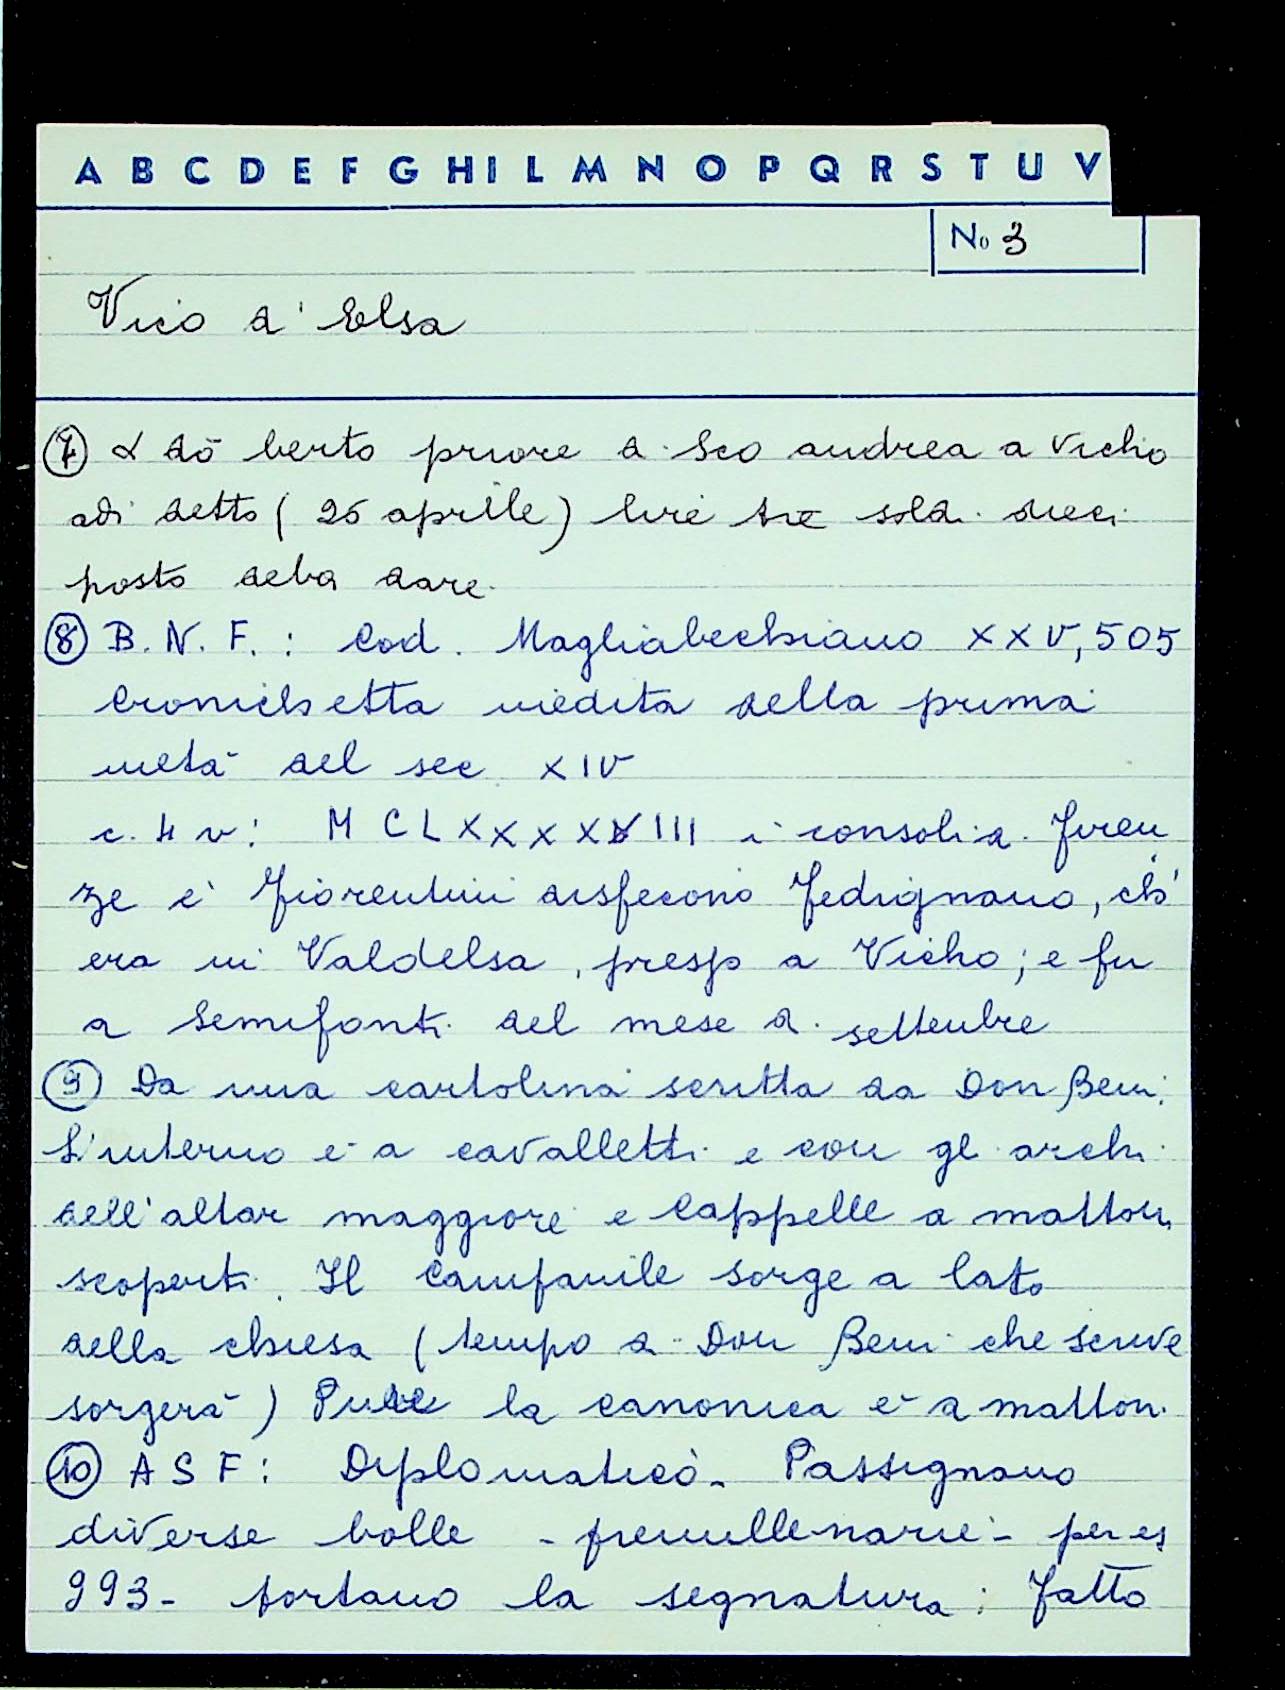 A B C D E F G H I L M N O P Q R S T U V
No 3
Vico d'Elsa
(7) & dō berto priore d. Sco andrea a Vicho
adi detto (26 aprile) lire tre soldi dieci
posto deba dare.
(8) B.N.F.: Cod. Magliabechiano XXV, 505
Cronichetta inedita della prima
metà del sec XIV
c. 4 v: MCLXXXXVIII i consoli di Firen
ze e Fiorentini disfecono Fedignano, ch'
era in Valdelsa, presso a Vicho; e fu
a Semifonti del mese di settenbre
(9) Da una cartolina scritta da Don Beni.
L'interno è a cavalletti e con gli archi
dell'altar maggiore e Cappelle a mattoni
scoperti. Il Campanile sorge a lato
della chiesa (tempo di Don Beni che scrive
sorgerà) Pure la canonica è a mattoni.
(10) ASF: Diplomatico - Passignano
diverse bolle - premillenarie - per es
993 - portano la segnatura: Fatto